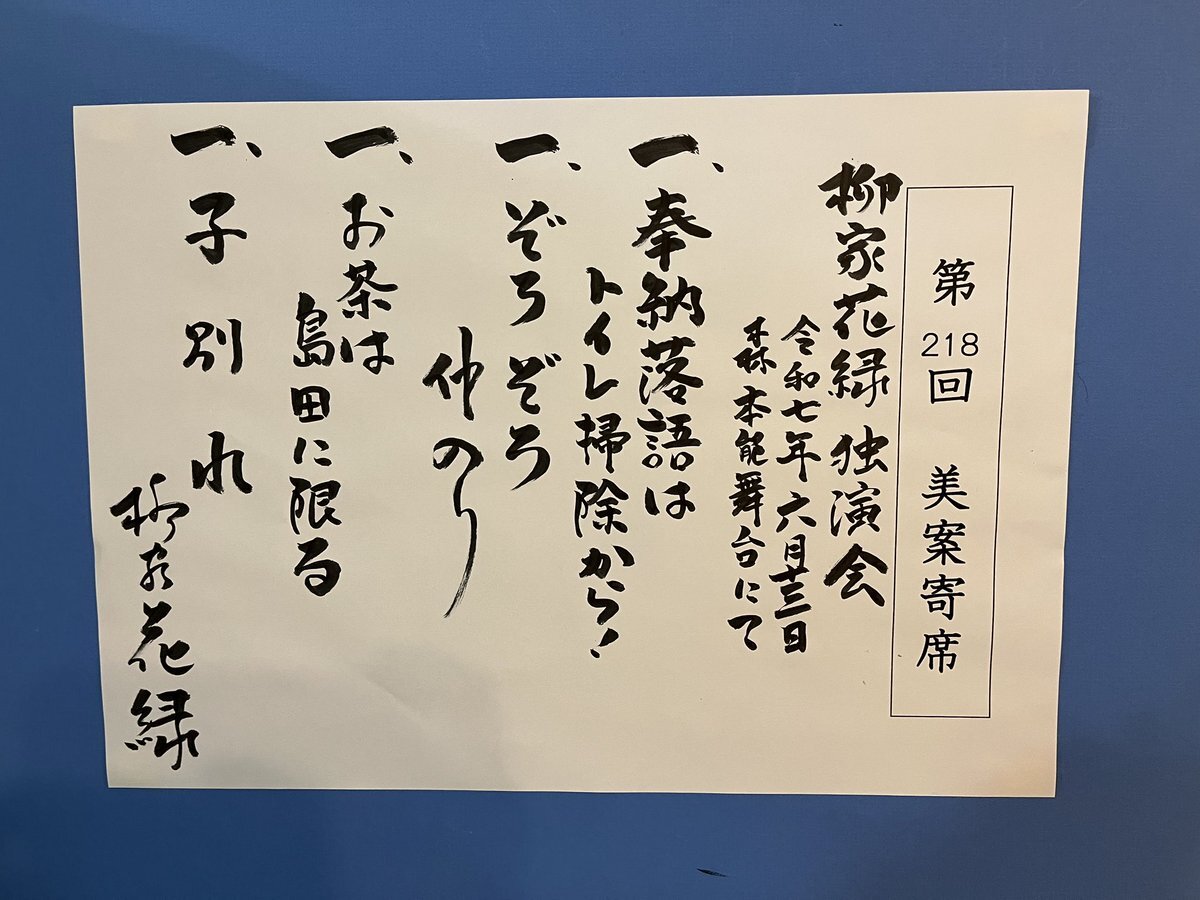 第218回 美案寄席
柳家花緑 独演会
令和七年六月廿三日
森本能舞台にて
一、奉納落語は
トイレ掃除から！
一、ぞろぞろ
仲のり
一、お茶は
島田に限る
一、子別れ
柳家花緑